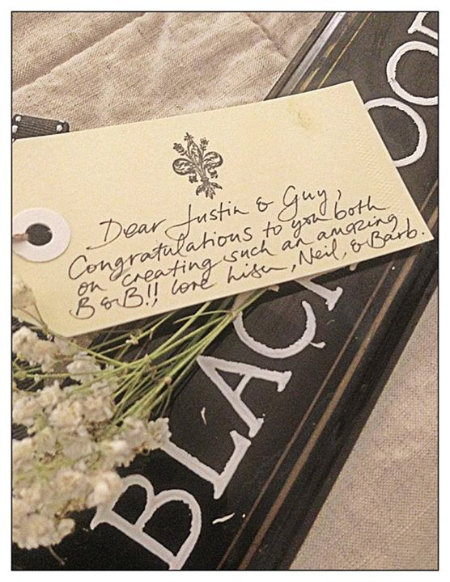 Dear Justin & Guy,
Congratulations to you both
on creating such an amazing
B&B!! love Lisa, Neil, & Barb.
BLAC
OO